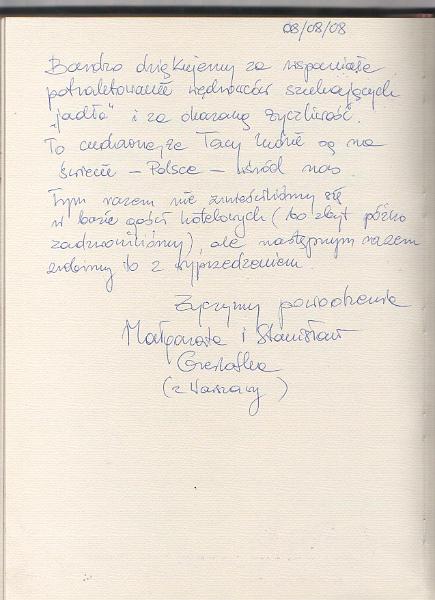 08/08/08
Bardzo dziękujemy za wspaniałe
potraktowanie wędrowców szukających
"jadła" i za okazaną życzliwość.
To cudowne, że Tacy ludzie są na
świecie – Polsce – wśród nas.
Tym razem nie zmieściliśmy się
w bazie gości hotelowych (bo zbyt późno
zadzwoniliśmy), ale następnym razem
zrobimy to z wyprzedzeniem.
Życzymy powodzenia
Małgorzata i Stanisław
(z Warszawy)